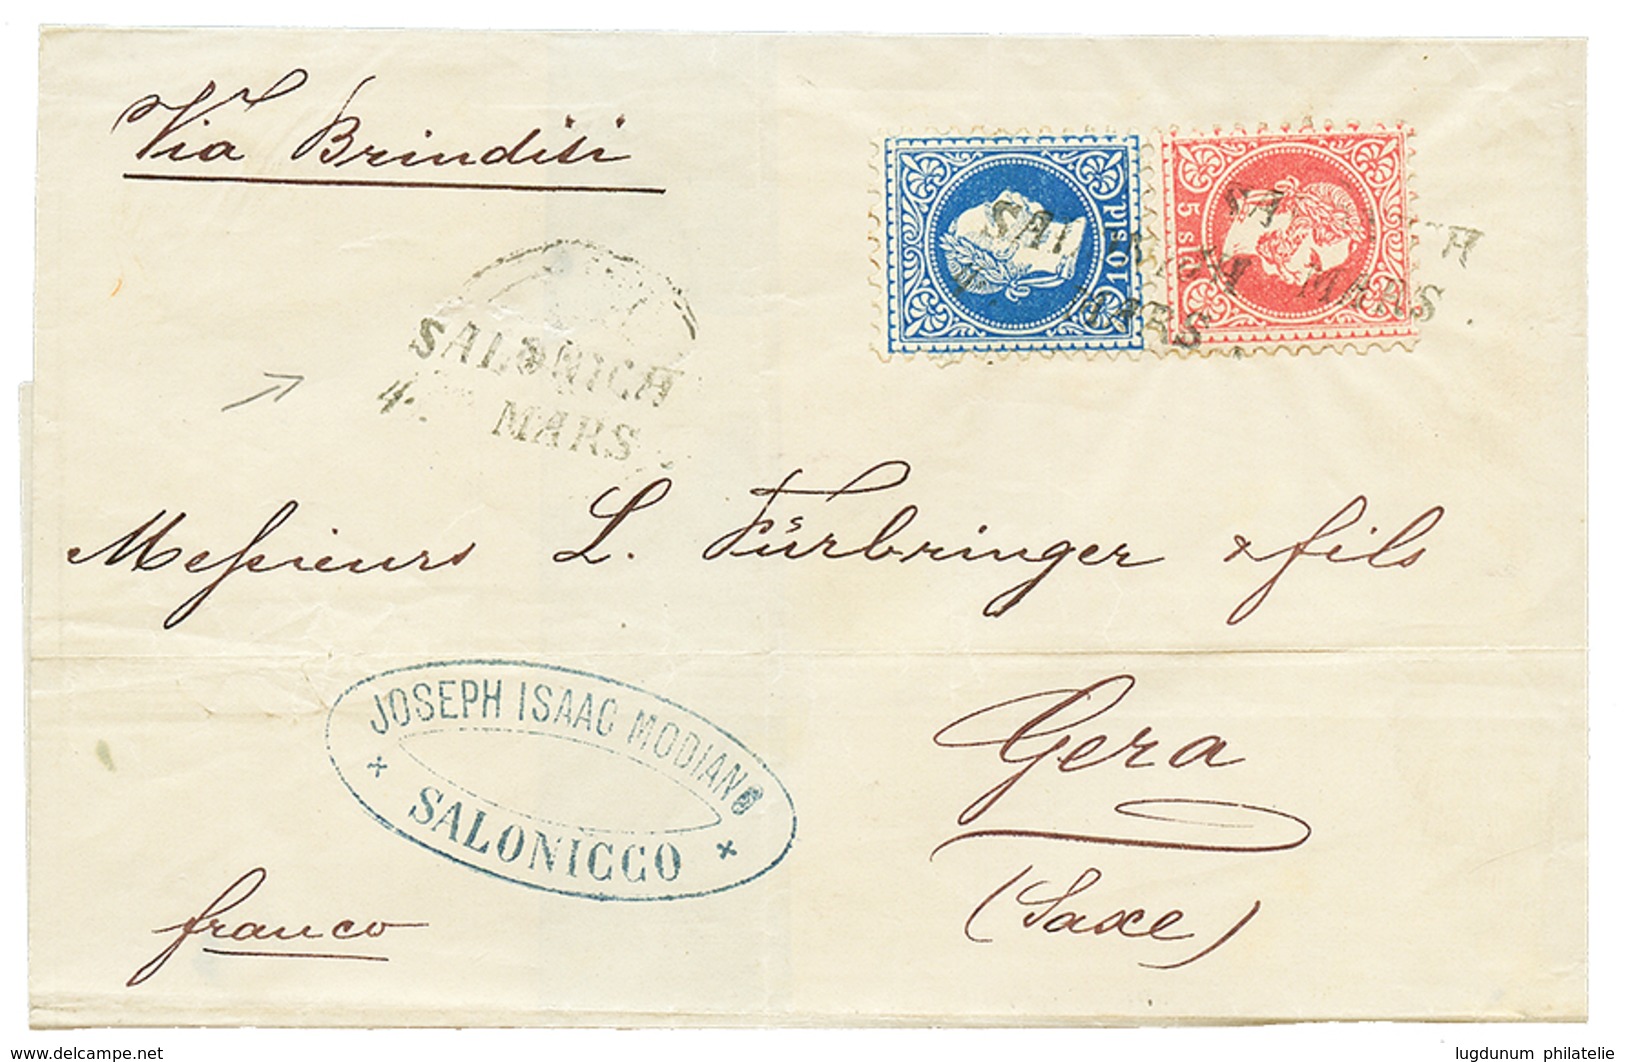 Via Brindisi
10 sld.
5 sld.
SALONICH
4. MARS.
SALONICH
MARS.
SALONICH
4. MARS
Messieurs L. Fürbringer & fils
JOSEPH ISAAC MODIANO
SALONICCO
Gera
(Saxe)
franco
www.delcampe.net
lugdunum philatelie